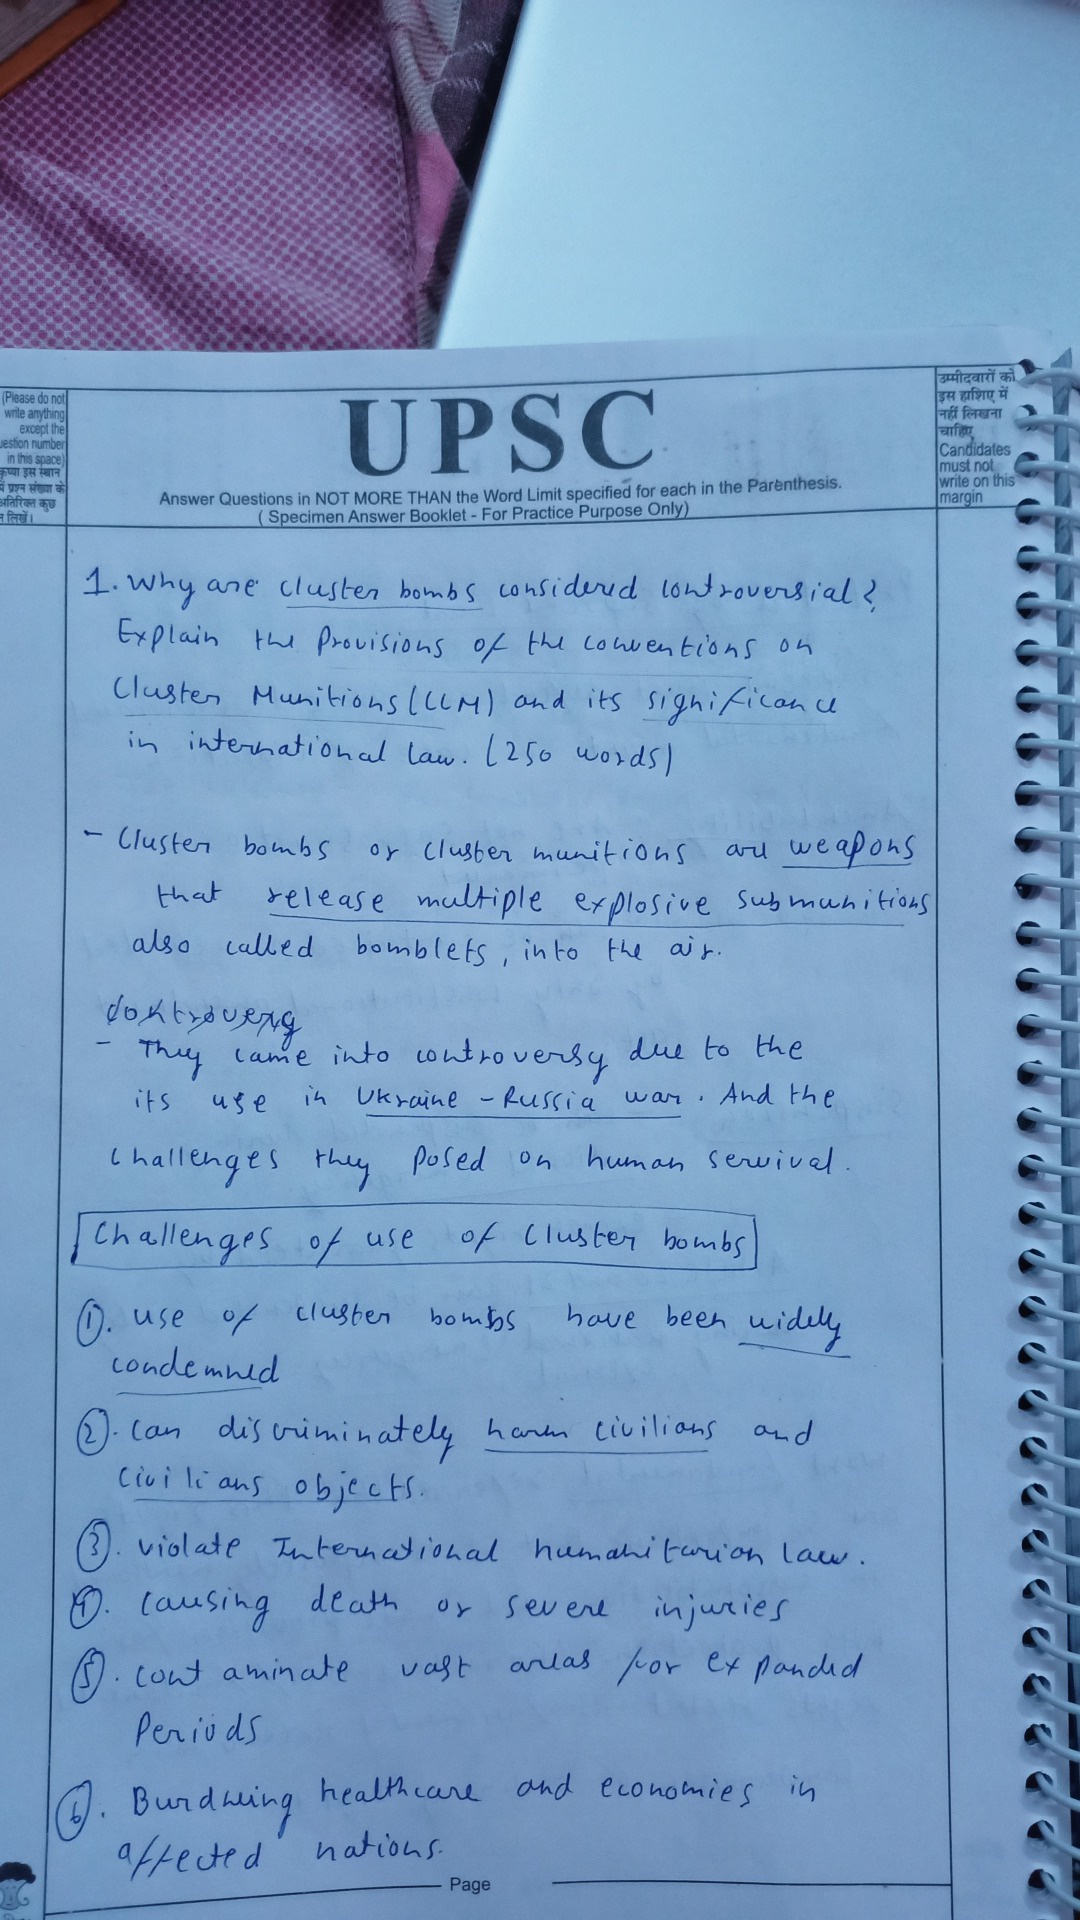 (Please do not
write anything
except the
uestion number
in this space)
कृप्या इस स्थान
में प्रश्न संख्या के
अतिरिक्त कुछ
न लिखें।
UPSC
Answer Questions in NOT MORE THAN the Word Limit specified for each in the Parenthesis.
( Specimen Answer Booklet - For Practice Purpose Only)
उम्मीदवारों को
इस हाशिए में
नहीं लिखना
चाहिए
Candidates
must not
write on this
margin
1. Why are cluster bombs considered controversial?
Explain the Provisions of the conventions on
Cluster Munitions (CCM) and its significance
in international law. (250 words)
- Cluster bombs or cluster munitions are weapons
that release multiple explosive submunitions
also called bomblets, into the air.
- They came into controversy due to the
its use in Ukraine - Russia war. And the
challenges they posed on human servival.
Challenges of use of Cluster bombs
①. use of cluster bombs have been widely
condemned
②. can discriminately harm civilians and
civilians objects.
③. violate International humanitarian law.
④. causing death or severe injuries
⑤. contaminate vast areas for expanded
Periods
⑥. Burdening healthcare and economies in
affected nations.
Page